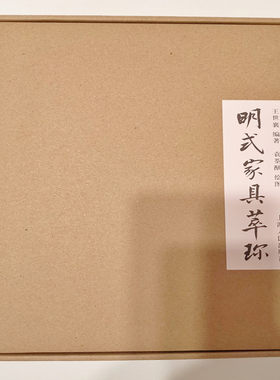 明式家具萃珍
王世襄 编著 袁荃猷 绘图